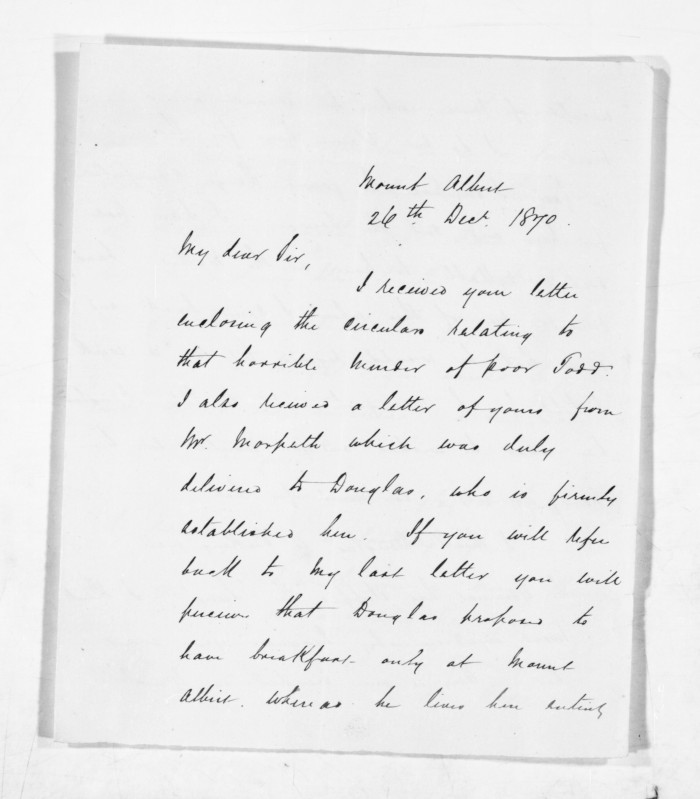 Mount Albert
26th Dect. 1870.
My dear Sir,
I received your letter
enclosing the circulars relating to
that horrible murder of poor Todd.
I also received a letter of yours from
Mr. Morpeth which was duly
delivered to Douglas, who is firmly
established here. If you will refer
back to my last letter you will
perceive that Douglas proposed to
have breakfast only at Mount
Albert. whereas he lives here entirely